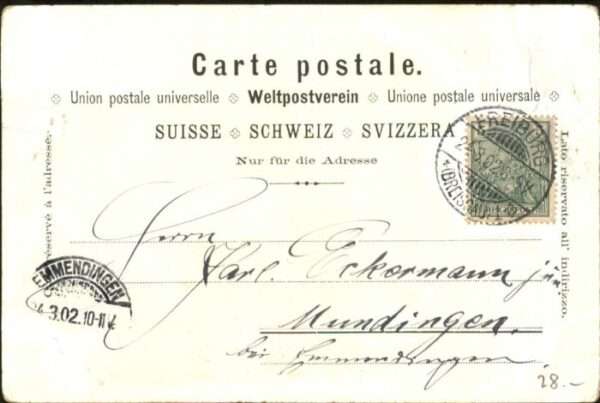 Carte postale.
Union postale universelle Weltpostverein Unione postale universale
SUISSE SCHWEIZ SVIZZERA
Nur für die Adresse
réservé à l'adresse.
Lato riservato all' indirizzo.
FREIBURG
(BREISGAU)
Herrn
Karl Eckermann jun.
Mundingen.
bei Emmendingen
EMMENDINGEN
3.02.10-11
28.-